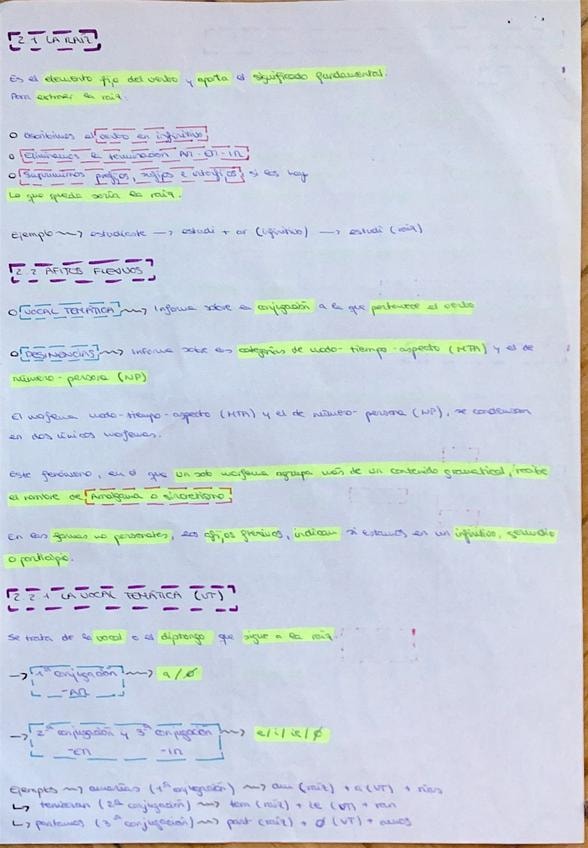 2.1 LA RAÍZ
Es el elemento fijo del verbo y aporta el significado fundamental.
Para extraer la raíz:
o escribimos el verbo en infinitivo
o Eliminamos la terminación AR-ER-IR
o Suprimimos prefijos, sufijos e interfijos si los hay
Lo que queda sería la raíz.
Ejemplo ~~> estudiaste —> estudi + ar (infinitivo) —> estudi (raíz)
2.2 AFIJOS FLEXIVOS
o VOCAL TEMÁTICA ~~> Informa sobre la conjugación a la que pertenece el verbo
o DESINENCIAS ~~> Informa sobre las categorías de modo-tiempo-aspecto (MTA) y el de
número-persona (NP)
El morfema modo-tiempo-aspecto (MTA) y el de número-persona (NP), se condensan
en dos únicos morfemas.
Este fenómeno, en el que un solo morfema agrupa más de un contenido gramatical, recibe
el nombre de Amalgama o sincretismo
En las formas no personales, los afijos flexivos, indican si estamos en un infinitivo, gerundio
o participio.
2.2.1 LA VOCAL TEMÁTICA (VT)
Se trata de la vocal o el diptongo que sigue a la raíz.
—> 1ª conjugación ~~> a/ø
-AR
—> 2ª conjugación y 3ª conjugación ~~> e/i/ie/ø
-ER -IR
Ejemplos ~~> amarías (1ª conjugación) ~~> am (raíz) + a (VT) + rías
↳ temieran (2ª conjugación) ~~> tem (raíz) + ie (VT) + ran
↳ partamos (3ª conjugación) ~~> part (raíz) + ø (VT) + amos